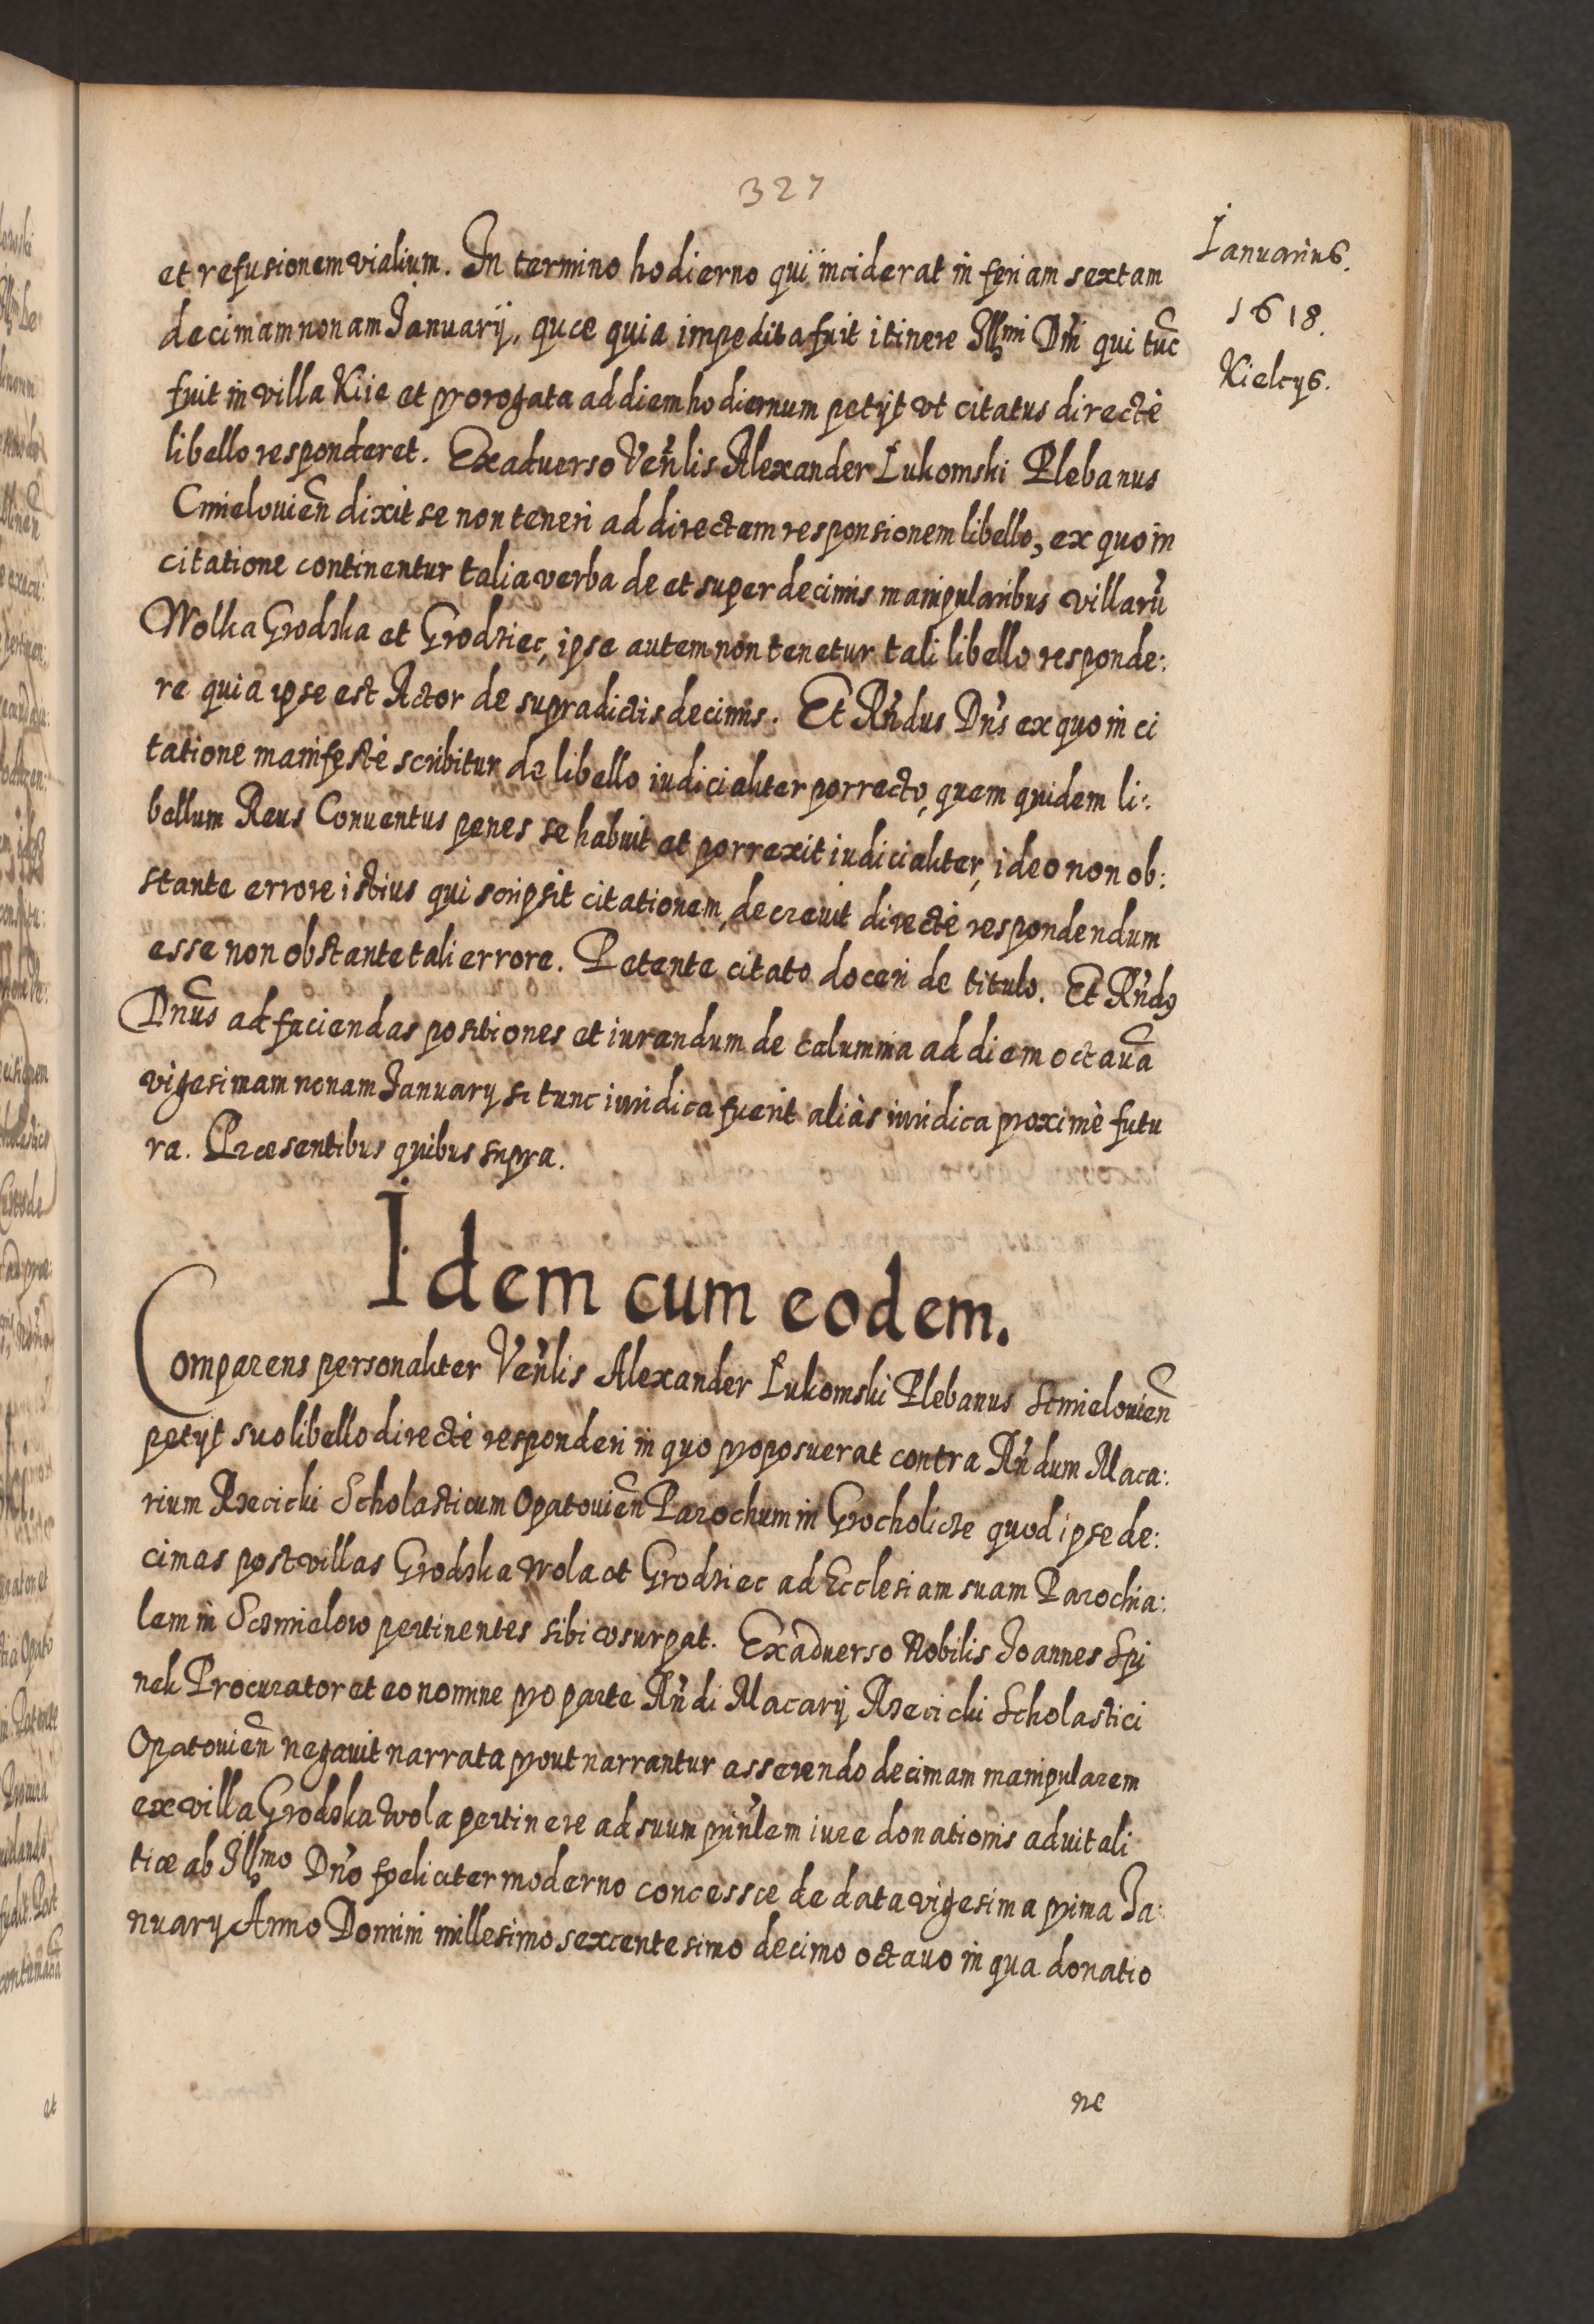 327
Ianuarius.
1618.
Kielcys.
et refusionem vialium. In termino hodierno qui inciderat in feriam sextam
decimam nonam Ianuarij, quæ quia impedita fuit itinere Illmi Dni qui tuc
fuit in villa Kiie et prorogata ad diem hodiernum petijt vt citatus directè
libello responderet. Ex aduerso Venlis Alexander Łukomski Plebanus
Cmielouien dixit se non teneri ad directam responsionem libello, ex quo in
citatione continentur talia verba de et super decimis manipularibus villaru
Wolka Grodzka et Grodziec, ipse autem non tenetur tali libello responde:
re quia ipse est Actor de supradictis decimis. Et Rndus Dns ex quo in ci
tatione manifestè scribitur de libello iudicialiter porrecto, quem quidem li:
bellum Reus Conuentus penes se habuit et porrexit iudicialiter, ideo non ob:
stante errore istius qui scripsit citationem, decreuit directè respondendum
esse non obstante tali errore. Petente citato doceri de titulo. Et Rndus
Dnus ad faciendas positiones et iurandum de calumnia ad diem octaua
vigesimam nonam Ianuary si tunc iuridica fuerit aliàs iuridica proximè futu
ra. Præsentibus quibus supra.
Idem cum eodem.
Comparens personaliter Venlis Alexander Łukomski Plebanus Scmielouien
petyt suo libello directè responderi in quo proposuerat contra Rndum Maca:
rium Rzecicki Scholasticum Opatouien Parochum in Grocholicze quod ipse de:
cimas post villas Grodzka Wola et Grodziec ad Ecclesiam suam Parochia:
lem in Sczmielow pertinentes sibi vsurpat. Ex aduerso Nobilis Ioannes Spi
nek Procurator et eo nomine pro parte Rndi Macarij Rzecicki Scholastici
Opatouien negauit narrata prout narrantur asserendo decimam manipularem
ex villa Grodzka Wola pertinere ad suum prinlem iure donationis aduitali
tiæ ab Illmo Dno fœliciter moderno concessæ de data vigesima prima Ia:
nuary Anno Domini millesimo sexcentesimo decimo octauo in qua donatio
ne